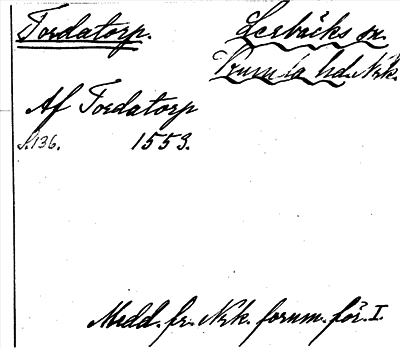 Tordatorp.
Lerbäcks sn.
Kumla hd. Nrk.
Af Tordatorp
s.136. 1553.
Medd. fr. Nrk. fornm. för. I.